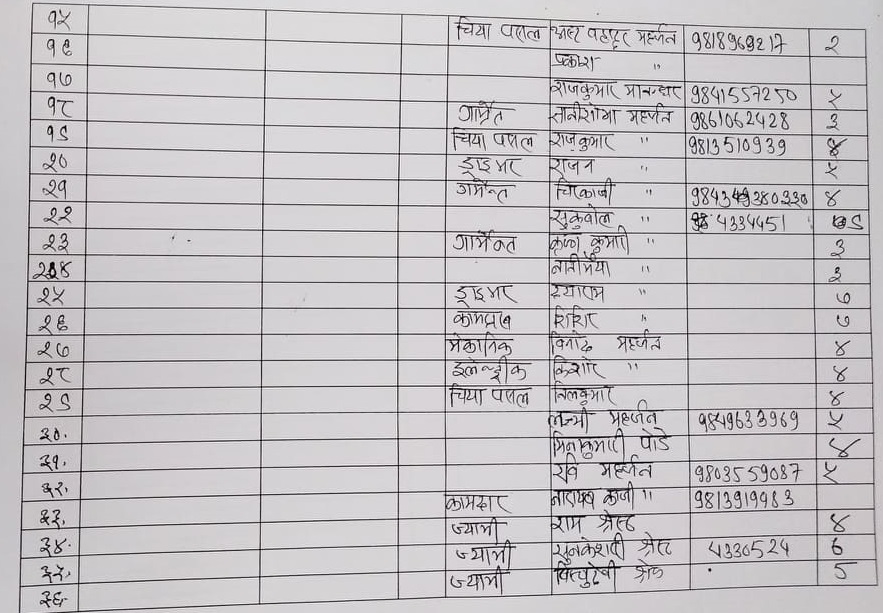 १५ चिया पसल अष्ट बहादुर महर्जन 9818969217 २
१६ प्रकाश "
१७ राजकुमार मानन्धर 9841557250 ५
१८ गार्मेन्ट महर्जन 9861062428 ३
१९ चिया पसल राजकुमार " 9813510939 ४
२० ड्राइभर राजन " ५
२१ गार्मेन्ट चिरिकाजी " ४
२२ " 4334451 ९
२३ गार्मेन्ट कुमारी " ३
२४ नानीमैया " ३
२५ ड्राइभर श्याराम " ७
२६ कामदार शिशिर " ७
२७ मेकानिक विनोद महर्जन ४
२८ किशोर " ४
२९ चिया पसल निलकुमार ४
३०. लक्ष्मी महर्जन 9849633969 ५
३१. मिनकुमारी पोडे ४
३२. रवि महर्जन 9803559087 ५
३३. कामदार नारायण काजी " 9813919983
३४. ज्यामी राम श्रेष्ठ ४
३५. ज्यामी सुनकेशरी श्रेष्ठ 4330524 6
३६ ज्यामी विष्णुदेवी श्रेष्ठ 5